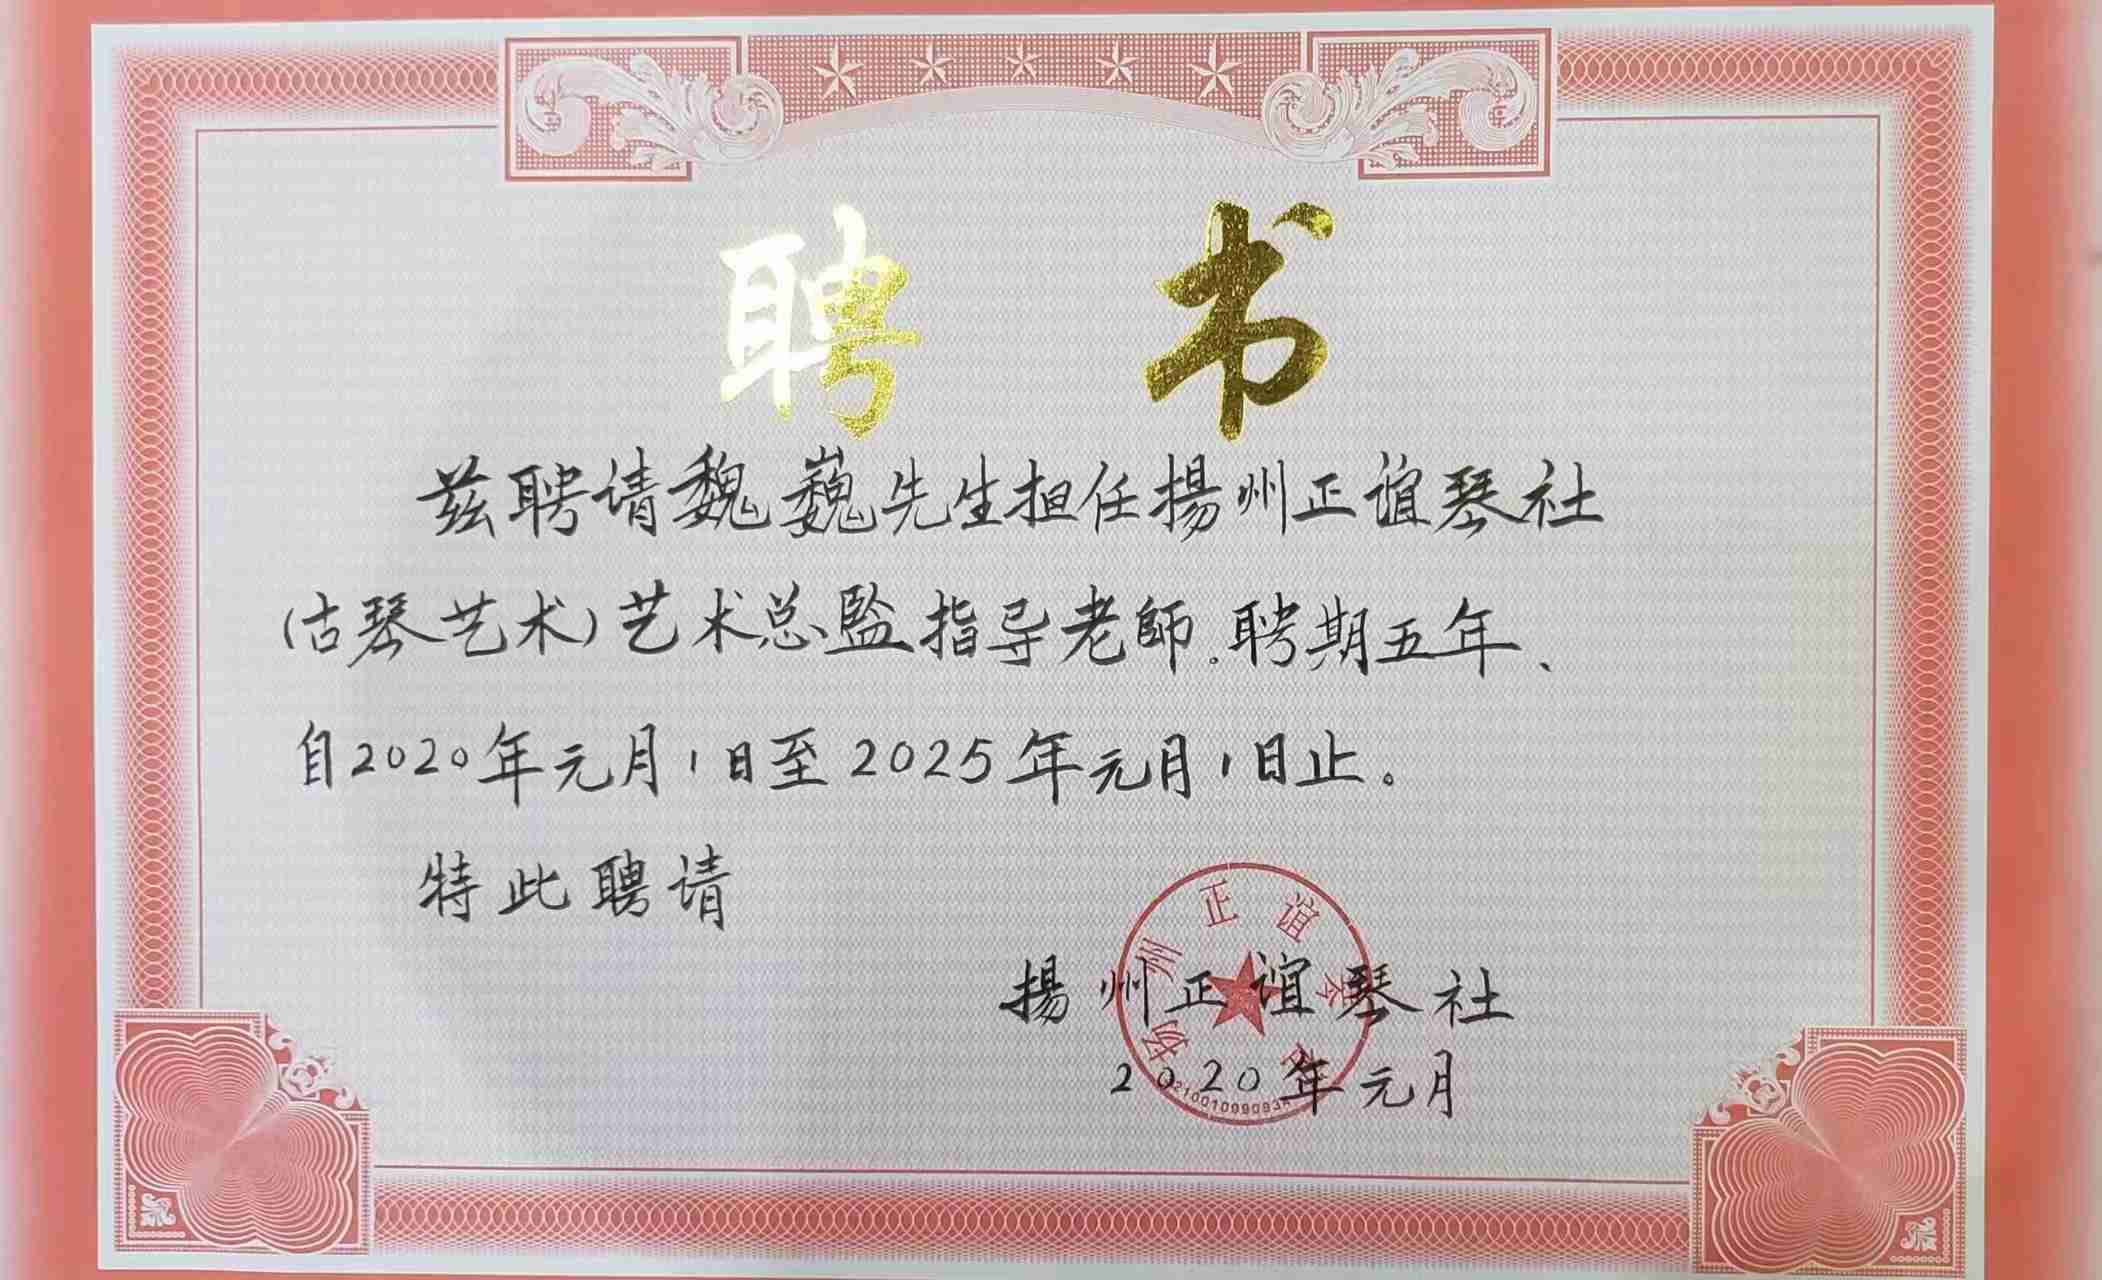 聘 书
兹聘请魏巍先生担任揚州正谊琴社
(古琴艺术)艺术总監指导老師。聘期五年、
自2020年元月1日至2025年元月1日止。
特此聘请
揚州正谊琴社
2020年元月
扬州正谊琴社